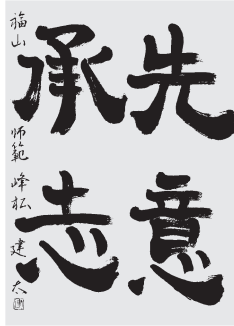 先意
承志
福山 師範 峰松 建太